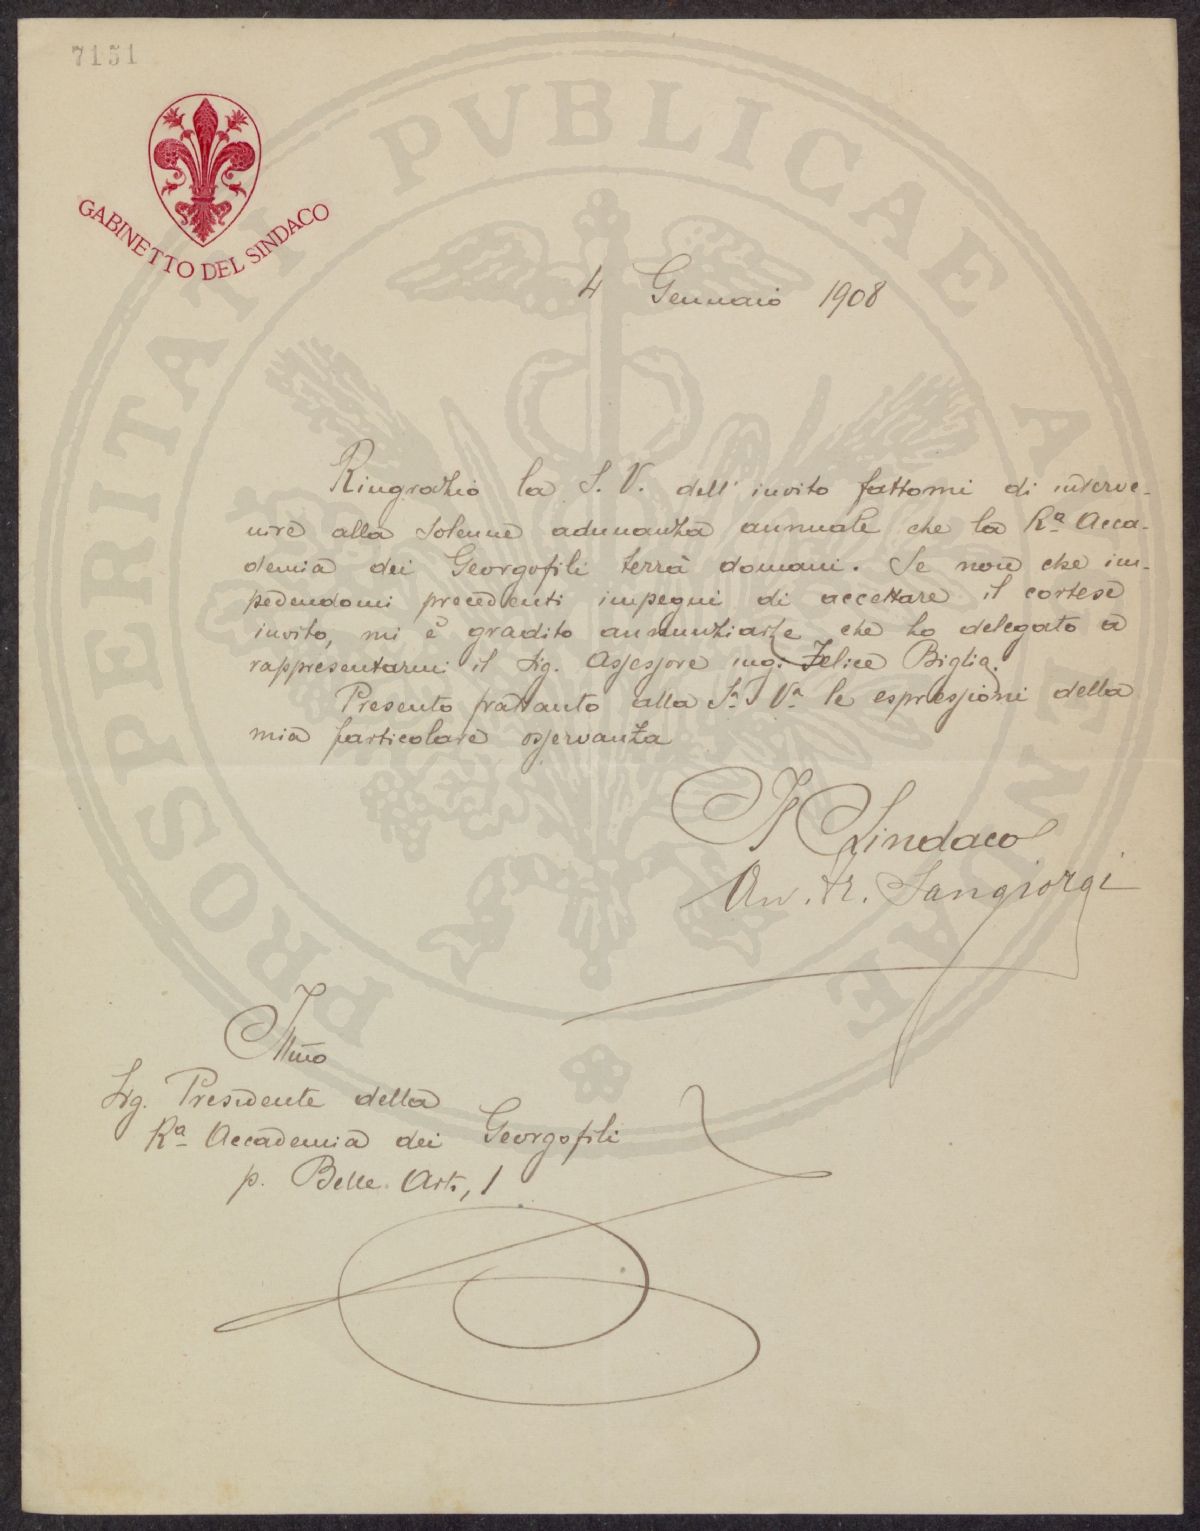 7151
GABINETTO DEL SINDACO
PROSPERITATI PVBLICAE AVGENDAE
4 Gennaio 1908
Ringrazio la S. V. dell' invito fattomi di interve-
nire alla solenne adunanza annuale che la Rª Acca-
demia dei Georgofili terrà domani. Se non che im-
pedendomi precedenti impegni di accettare il cortese
invito, mi è gradito annunziarle che ho delegato a
rappresentarmi il Sig. Assessore ing. Felice Biglia.
Presento frattanto alla Sª Vª le espressioni della
mia particolare osservanza
Il Sindaco
Sangiorgi
Illmo
Sig. Presidente della
Rª Accademia dei Georgofili
p. Belle Arti, 1